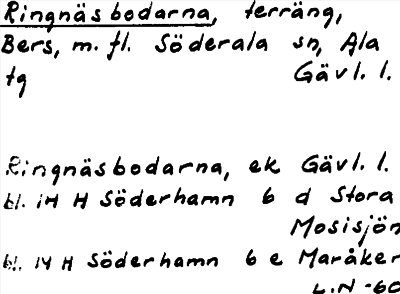 Ringnäsbodarna, terräng,
Bers, m. fl. Söderala sn, Ala
tg Gävl. l.
Ringnäsbodarna, ek Gävl. l.
bl. 14 H Söderhamn 6 d Stora
Mosisjön
bl. 14 H Söderhamn 6 e Maråker
L.N -60